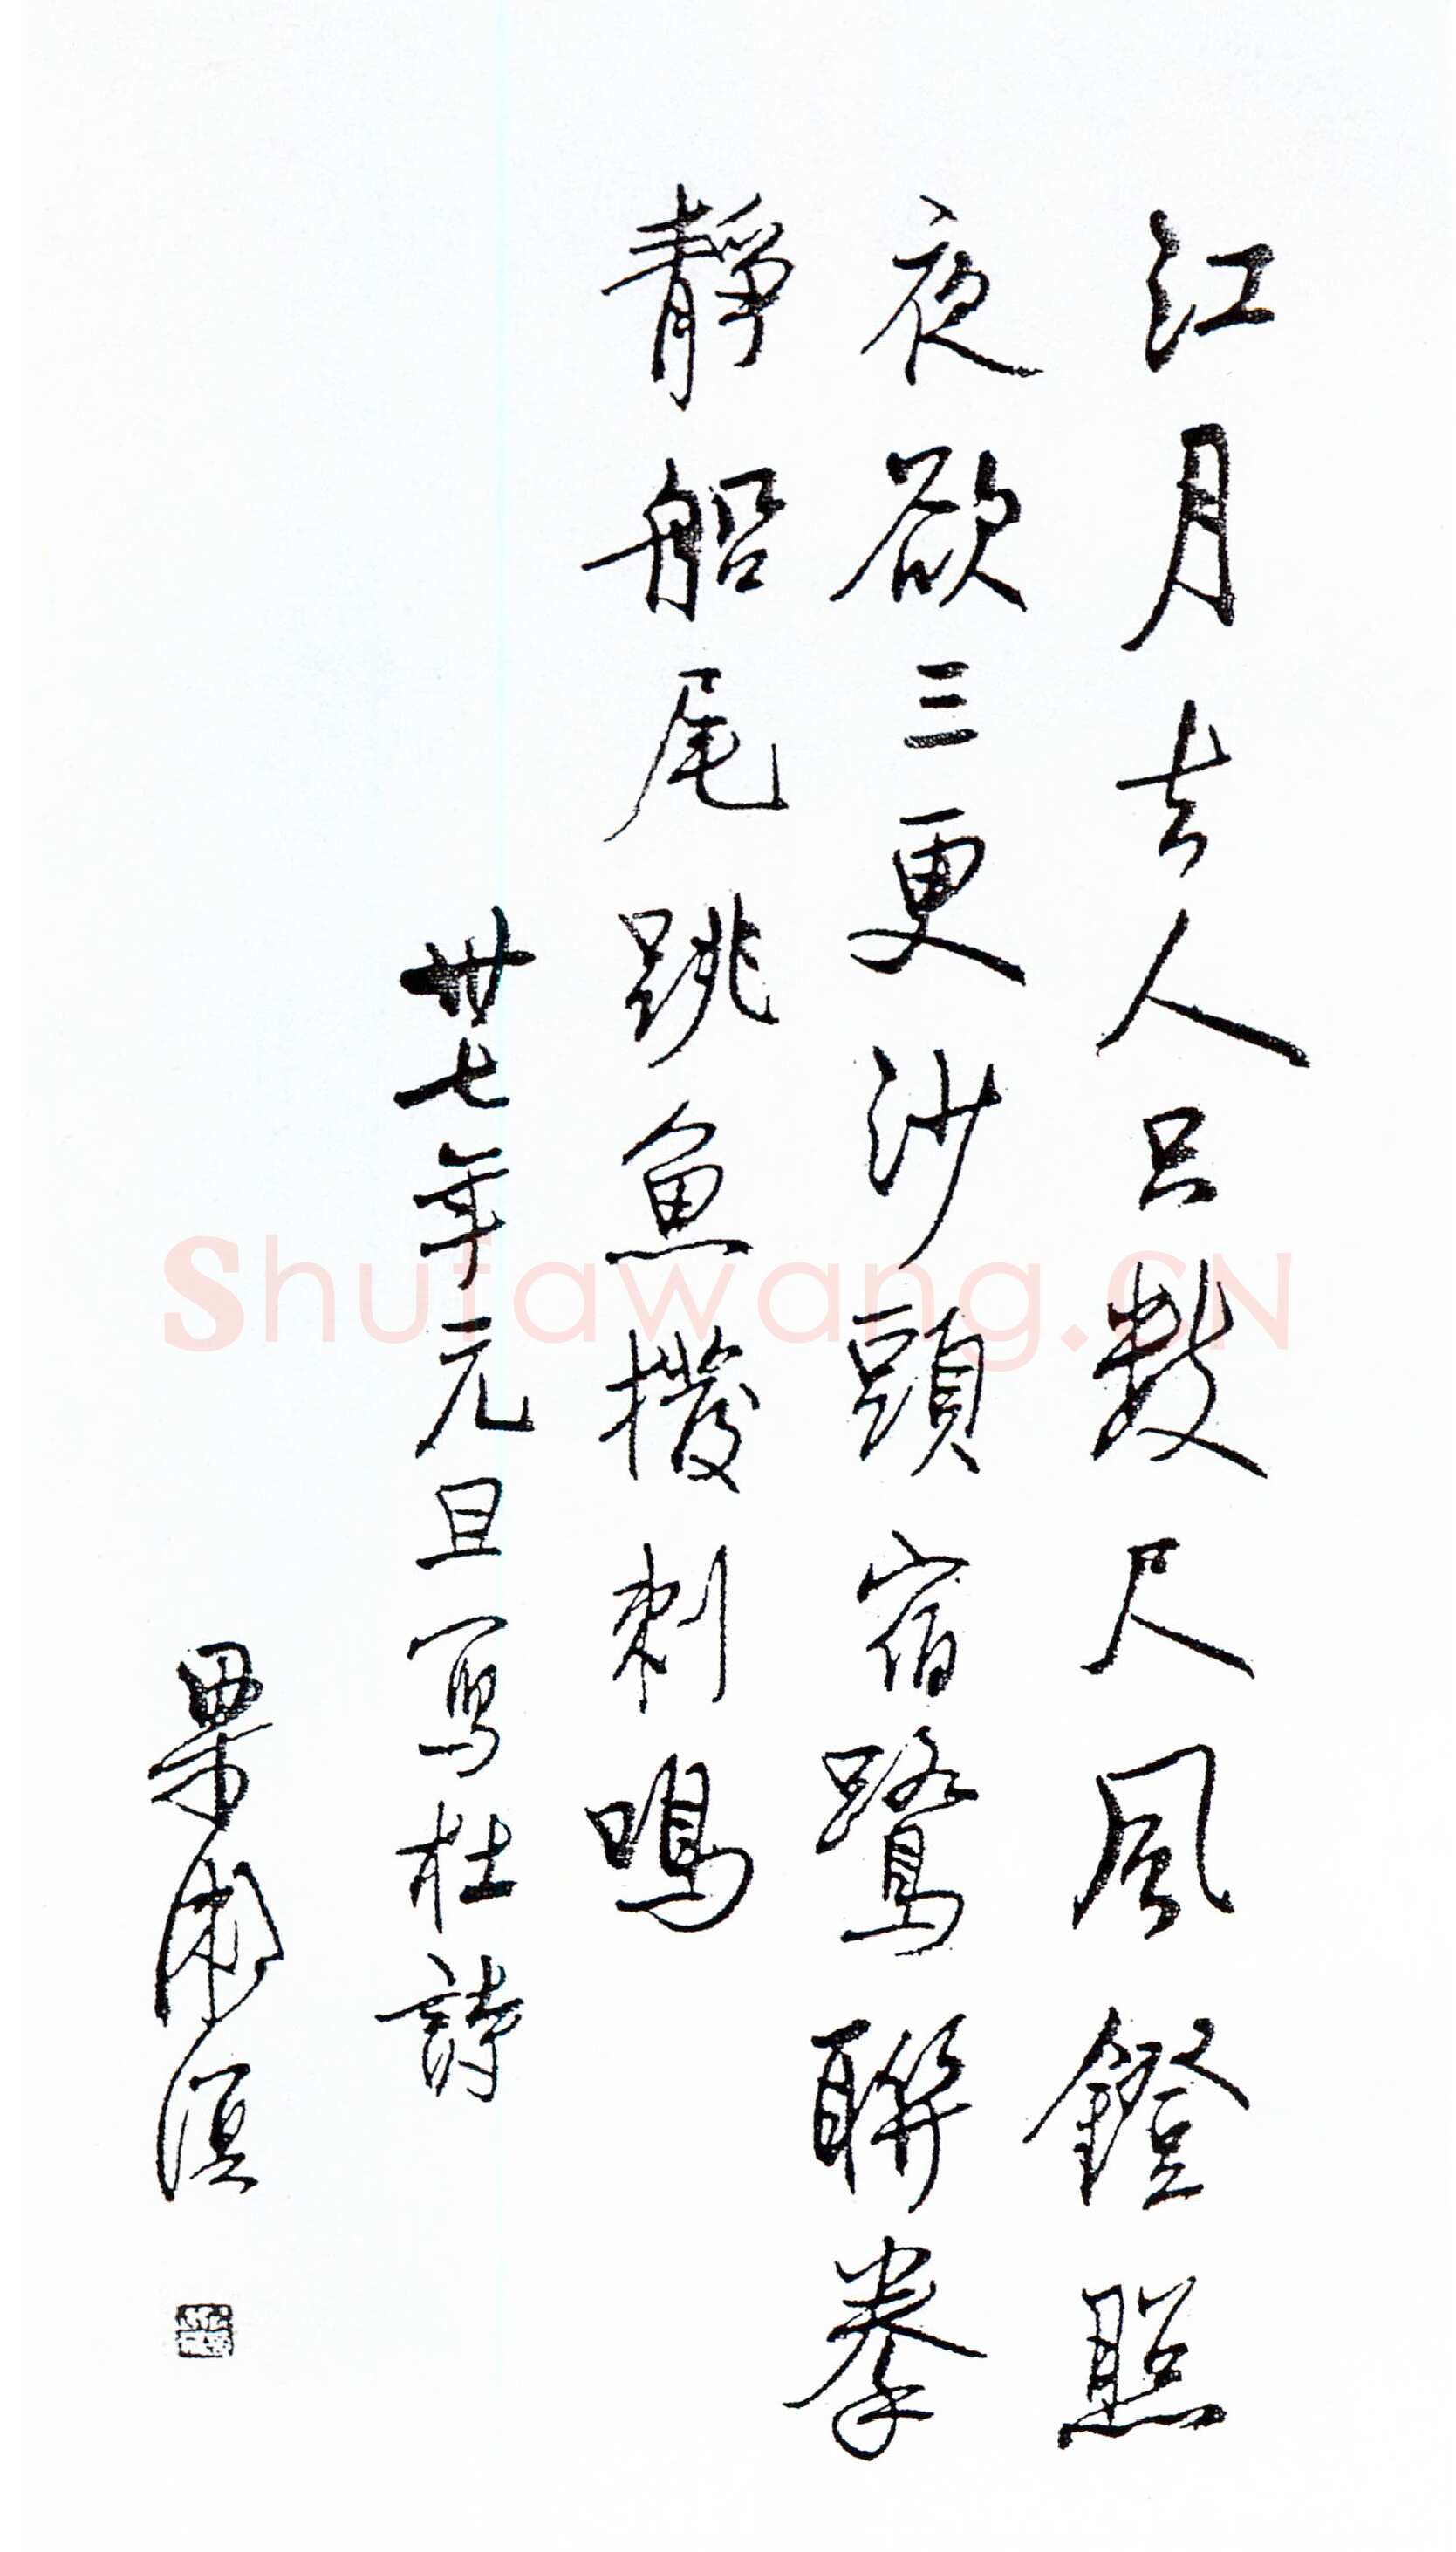 江月去人只数尺風鐙照
夜欲三更沙頭宿鷺聯拳
靜船尾跳魚撥刺鳴
卅七年元旦写杜詩
梁漱溟
Shufawang.CN